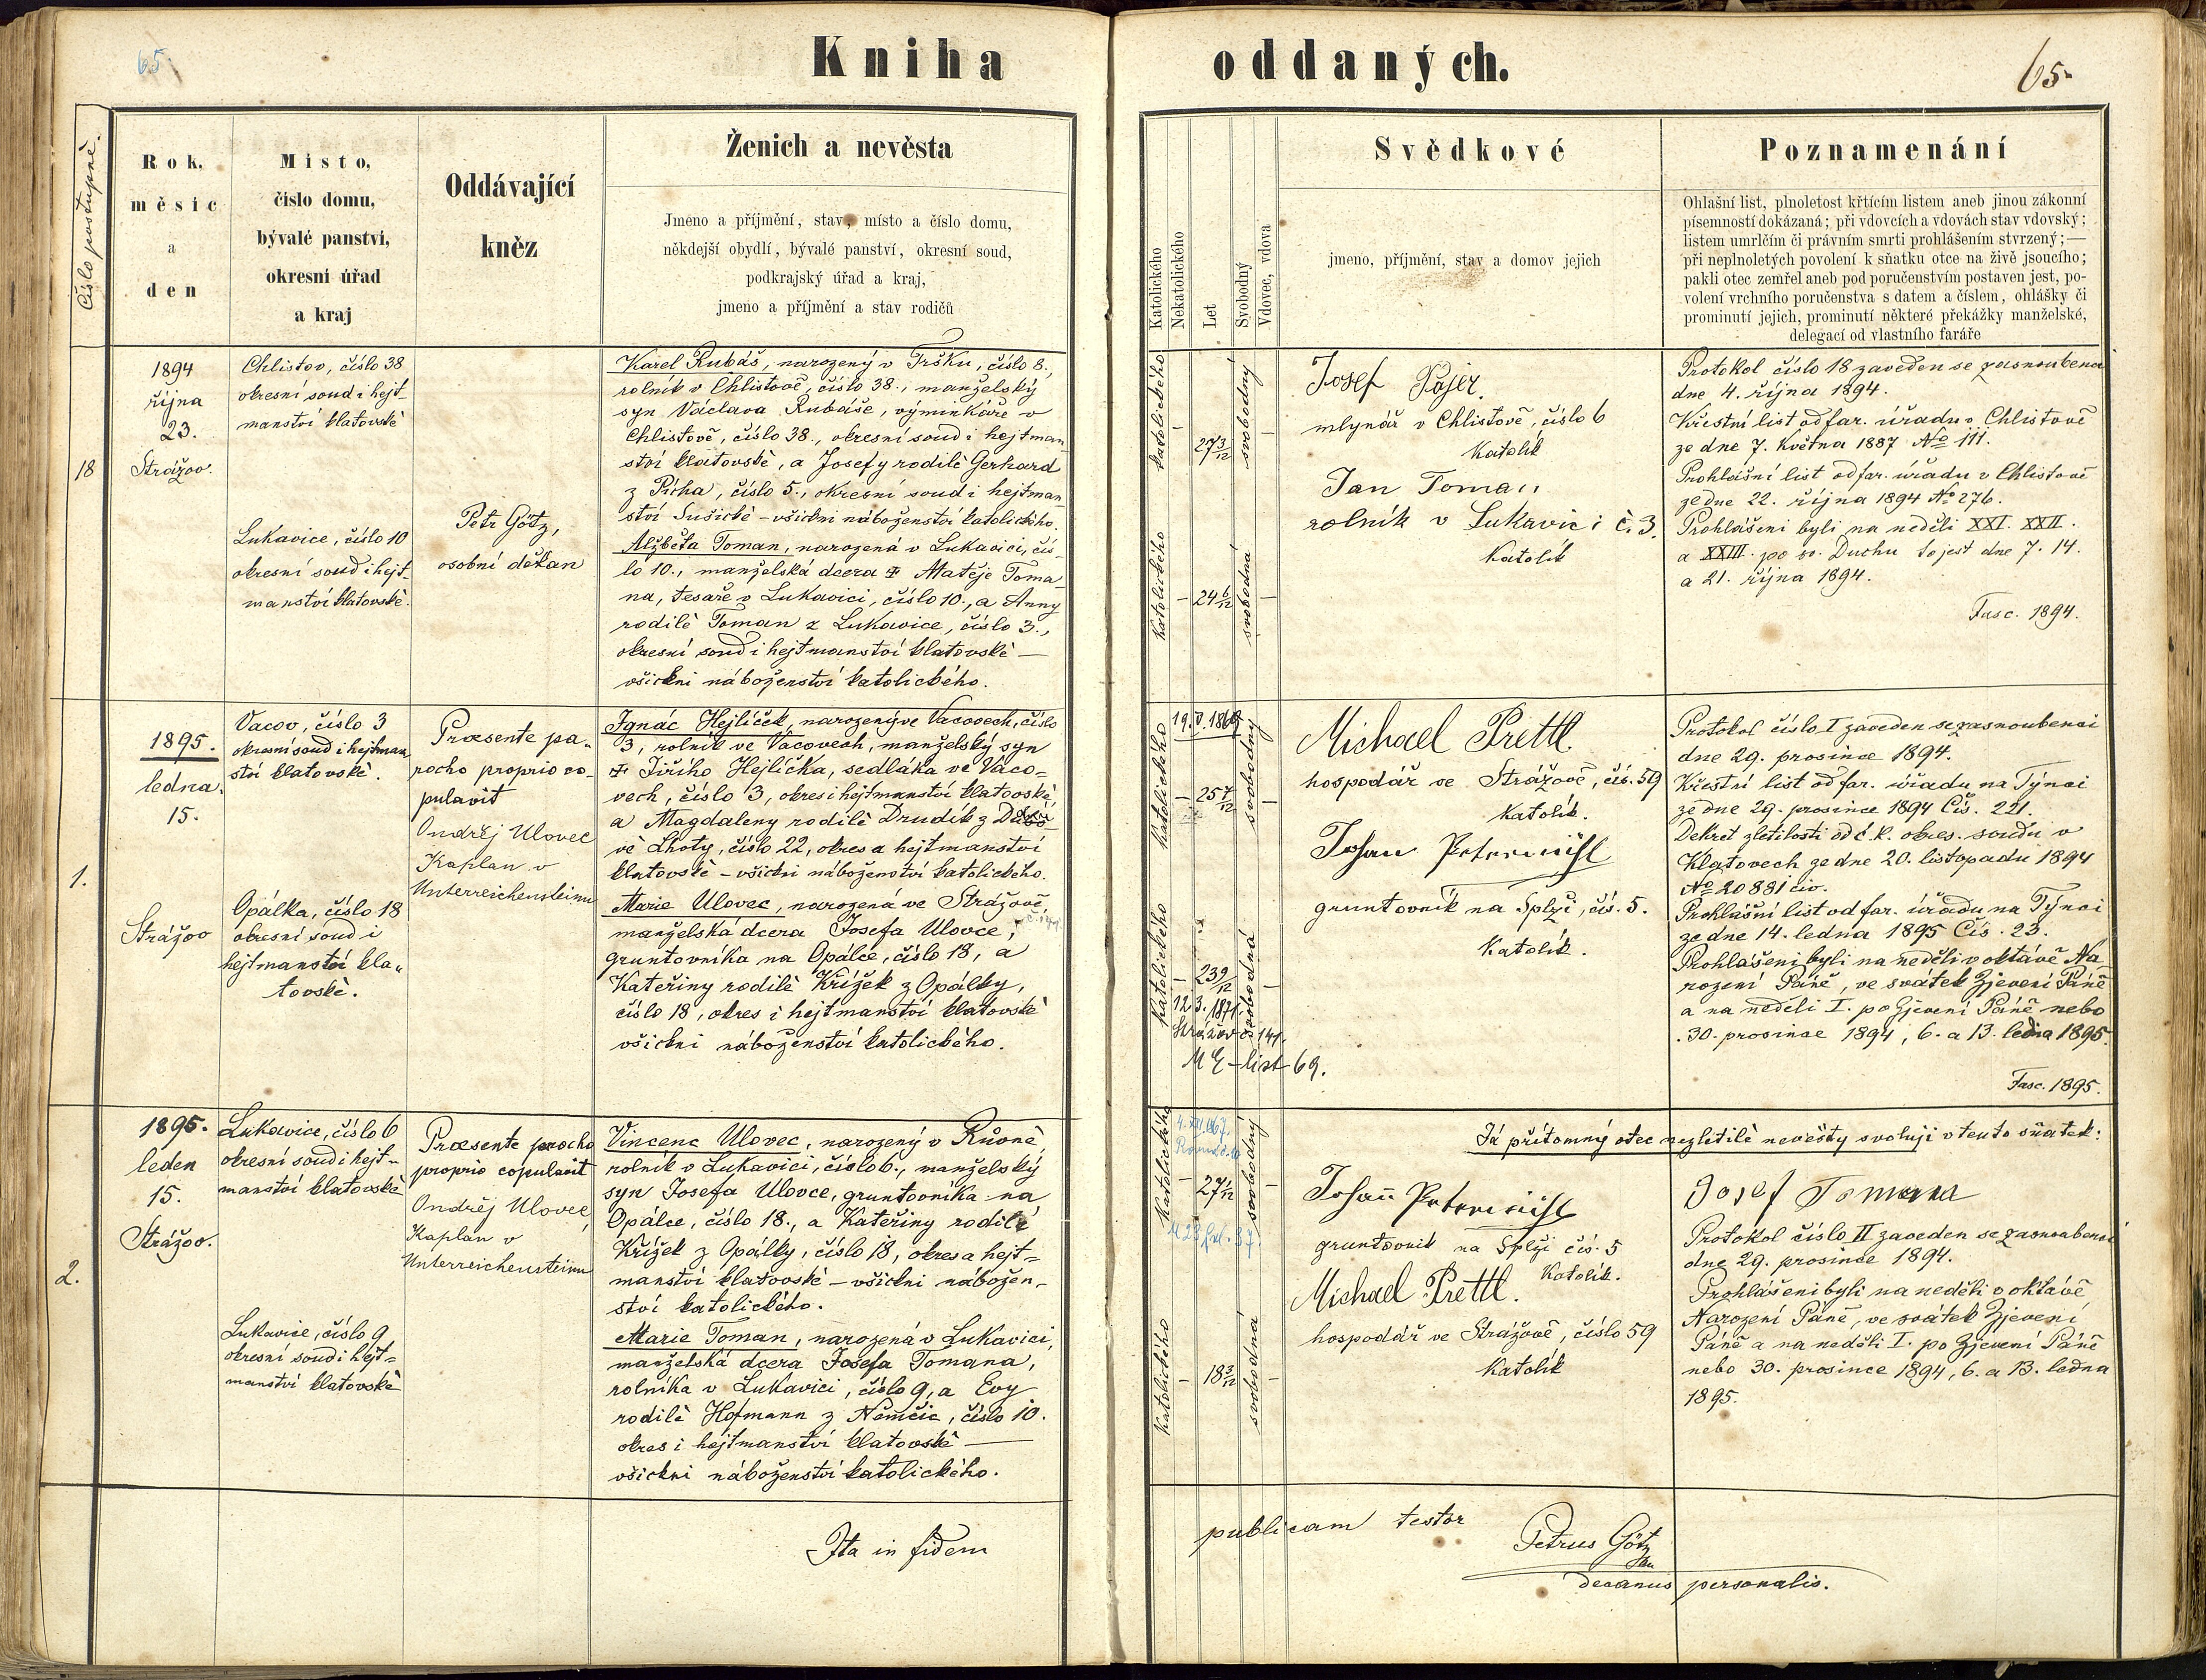 65.
Kniha oddaných.
65
Číslo postupné.
Rok,
měsíc
a
den
Místo,
číslo domu,
bývalé panství,
okresní úřad
a kraj
Oddávající
kněz
Ženich a nevěsta
Jmeno a příjmění, stav, místo a číslo domu,
někdejší obydlí, bývalé panství, okresní soud,
podkrajský úřad a kraj,
jmeno a příjmění a stav rodičů
Katolického
Nekatolického
Let
Svobodný
Vdovec, vdova
Svědkové
jmeno, příjmění, stav a domov jejich
Poznamenání
Ohlašní list, plnoletost křtícím listem aneb jinou zákonní
písemností dokázaná; při vdovcích a vdovách stav vdovský;
listem umrlčím či právním smrti prohlášením stvrzený;—
při neplnoletých povolení k sňatku otce na živě jsoucího;
pakli otec zemřel aneb pod poručenstvím postaven jest, po-
volení vrchního poručenstva s datem a číslem, ohlášky či
prominutí jejich, prominutí některé překážky manželské,
delegací od vlastního faráře
18
1894
října
23.
Strážov.
Chlistov, číslo 38
okresní soud i hejt-
manství klatovské
Lukavice, číslo 10
okresní soud i hejt-
manství klatovské.
Petr Götz,
osobní děkan
Karel Rubáš, narozený v Tršku, číslo 8.,
rolník v Chlistově, číslo 38., manželský
syn Václava Rubáše, výminkáře v
Chlistově, číslo 38., okresní soud i hejtman
ství klatovské, a Josefy rodilé Gerhard
z Picha, číslo 5., okresní soud i hejtman
ství Sušické – všickni náboženství katolického.
Alžběta Toman, narozená v Lukavici, čís-
lo 10., manželská dcera ✠ Matěje Toma
na, tesaře v Lukavici, číslo 10., a Anny
rodilé Toman z Lukavice, číslo 3.,
okresní soud i hejtmanství klatovské —
všickni náboženství katolického.
katolického
–
27 3/12
svobodný
–
katolického
–
24 6/12
svobodná
–
Josef Pajer.
mlynář v Chlistově, číslo 6
Katolík
Jan Toman
rolník v Lukavici č. 3.
Katolík
Protokol číslo 18 zaveden se zasnoubenci
dne 4. října 1894.
Křestní list od far. úřadu v Chlistově
ze dne 7. Května 1887 No 111.
Prohlášní list od far. úřadu v Chlistově
ze dne 22. října 1894 No 276.
Prohlášeni byli na neděli XXI. XXII.
a XXIII. po sv. Duchu to jest dne 7. 14.
a 21. října 1894.
Fasc. 1894.
1.
1895.
ledna.
15.
Strážov
Vacov, číslo 3
okresní soud i hejtman
ství klatovské.
Opálka, číslo 18
okresní soud i
hejtmanství kla-
tovské.
Praesente pa-
rocho proprio co-
pulavit
Ondřej Ulovec
Kaplan v
Unterreichensteinu
Ignác Hejlíček, narozený ve Vacovech, číslo
3, rolník ve Vacovech, manželský syn
✠ Jiřího Hejlíčka, sedláka ve Vaco-
vech, číslo 3, okres i hejtmanství klatovské
a Magdaleny rodilé Drudík z
vé Lhoty, číslo 22, okres a hejtmanství
klatovské – všickni náboženství katolického.
Marie Ulovec, narozená ve Strážově,
manželská dcera Josefa Ulovce,
gruntovníka na Opálce, číslo 18, a
Kateřiny rodilé Křížek z Opálky,
číslo 18, okres i hejtmanství klatovské
všickni náboženství katolického.
19. V. 1869
katolického
–
25 7/12
svobodný
–
katolického
–
23 9/12
svobodná
–
12. 3. 1871.
Strážov č 141.
list 69.
Michael Prettl
hospodář ve Strážově, čís. 59
Katolík.
Johan
gruntovník na Splži, čís. 5.
Katolík.
Protokol číslo I zaveden se zasnoubenci
dne 29. prosince 1894.
Křestní list od far. úřadu na Týnci
ze dne 29. prosince 1894 Čís. 221.
Dekret zletilosti od c.k. okres. soudu v
Klatovech ze dne 20. listopadu 1894
No 20881 civ.
Prohlášní list od far. úřadu na Týnci
ze dne 14. ledna 1895 Čís. 23.
Prohlášeni byli na neděli v oktávě Na
rození Páně, ve svátek Zjevení Páně
a na neděli I. po Zjevení Páně nebo
30. prosince 1894, 6. a 13. ledna 1895.
Fasc. 1895.
2.
1895.
leden
15.
Strážov.
Lukavice, číslo 6
okresní soud i hejt-
manství klatovské
Lukavice, číslo 9
okresní soud i hejt-
manství klatovské
Praesente parocho
proprio copulavit
Ondřej Ulovec,
Kaplan v
Unterreichensteinu
Vincenc Ulovec, narozený v Růoné,
rolník v Lukavici, číslo 6., manželský
syn Josefa Ulovce, gruntovníka na
Opálce, číslo 18., a Kateřiny rodilé
Křížek z Opálky, číslo 18, okres a hejt-
manství klatovské – všickni nábožen-
ství katolického.
Marie Toman, narozená v Lukavici,
manželská dcera Josefa Tomana,
rolníka v Lukavici, číslo 9, a Evy
rodilé Hofmann z Němčic, číslo 10.
okres i hejtmanství klatovské —
všickni náboženství katolického.
katolického
–
27 1/12
svobodný
katolického
–
18 3/12
svobodná
–
Já přítomný otec nezletilé nevěsty svoluji v tento sňatek:
Josef Tomana
Johann
gruntovník na Splži čís. 5
Katolík.
Michael Prettl.
hospodář ve Strážově, číslo 59
Katolík
Protokol číslo II zaveden se zasnoubenci
dne 29. prosince 1894.
Prohlášeni byli na neděli v oktávě
Narození Páně, ve svátek Zjevení
Páně a na neděli I. po Zjevení Páně
nebo 30. prosince 1894, 6. a 13. ledna
1895.
Ita in fidem publicam testor
Petrus Götz
decanus personalis.